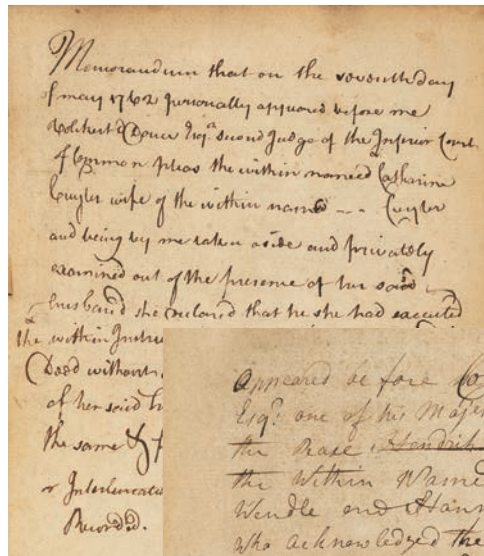 Memorandum that on the seventh day
of may 1762 personally appeared before me
Volckert P Douw Esqr second Judge of the Inferior Court
of Common pleas the within named Catharine
Cuyler wife of the within named --- Cuyler
and being by me taken aside and privately
examined out of the presence of her said
husband she declared that he she had executed
the within
Deed without
of her said
the same &
or
Record.
appeared be fore
Esqr one of his Majes
the Peace Hendrik
the Within Name
Wendle and Hann
who acknowledged the